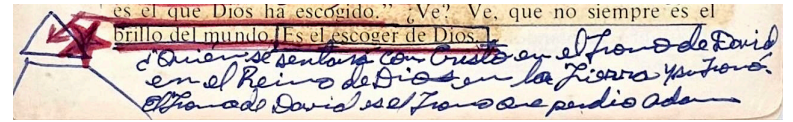 es el que Dios ha escogido.” ¿Ve? Ve, que no siempre es el
brillo del mundo. Es el escoger de Dios.
¿Quién se sentará con Cristo en el Trono de David
en el Reino de Dios en la Tierra y su Trono?
El Trono de David es el Trono que perdio Adan